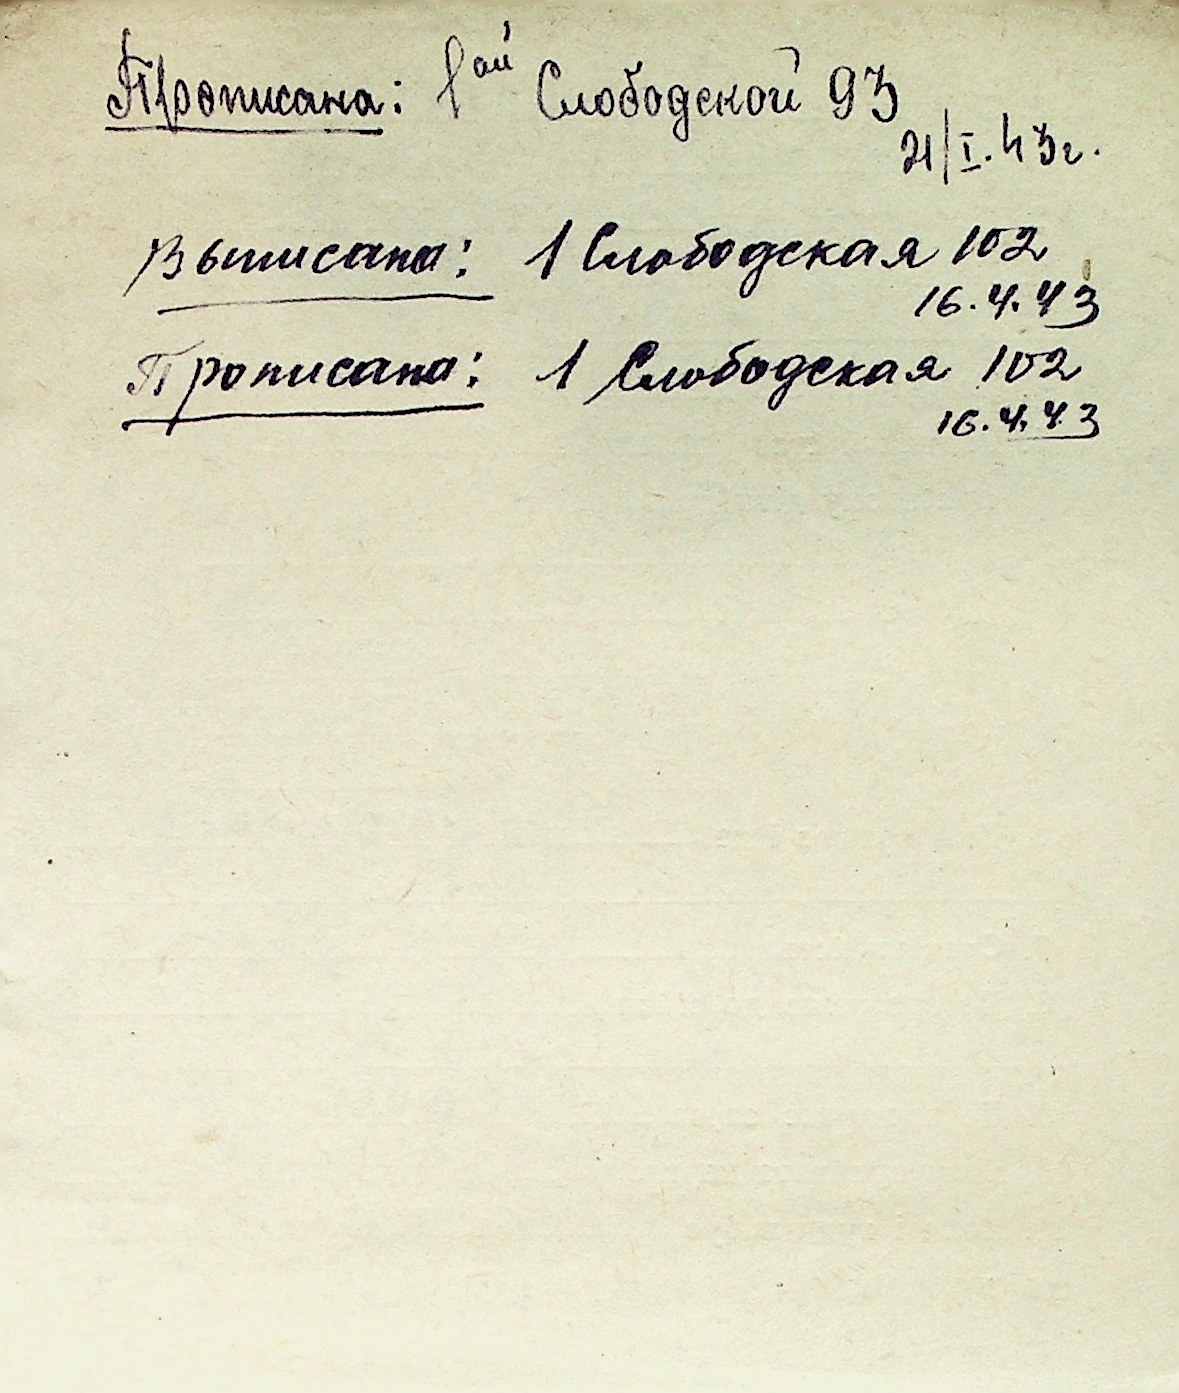 Прописана: 1ой Слободской 93
21/I.43г.
Выписана: 1 Слободская 102
16.4.43
Прописана: 1 Слободская 102
16.4.43